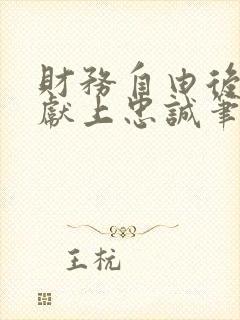 財務自由後
獻上忠誠筆
王杬